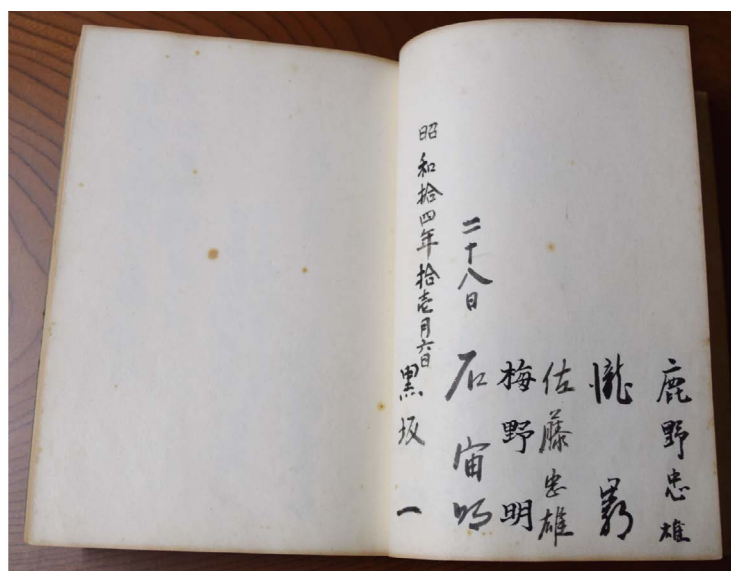 鹿野忠雄
瀧
佐藤忠雄
梅野明
二十八日
石宙明
昭和拾四年拾壱月六日
黒坂一